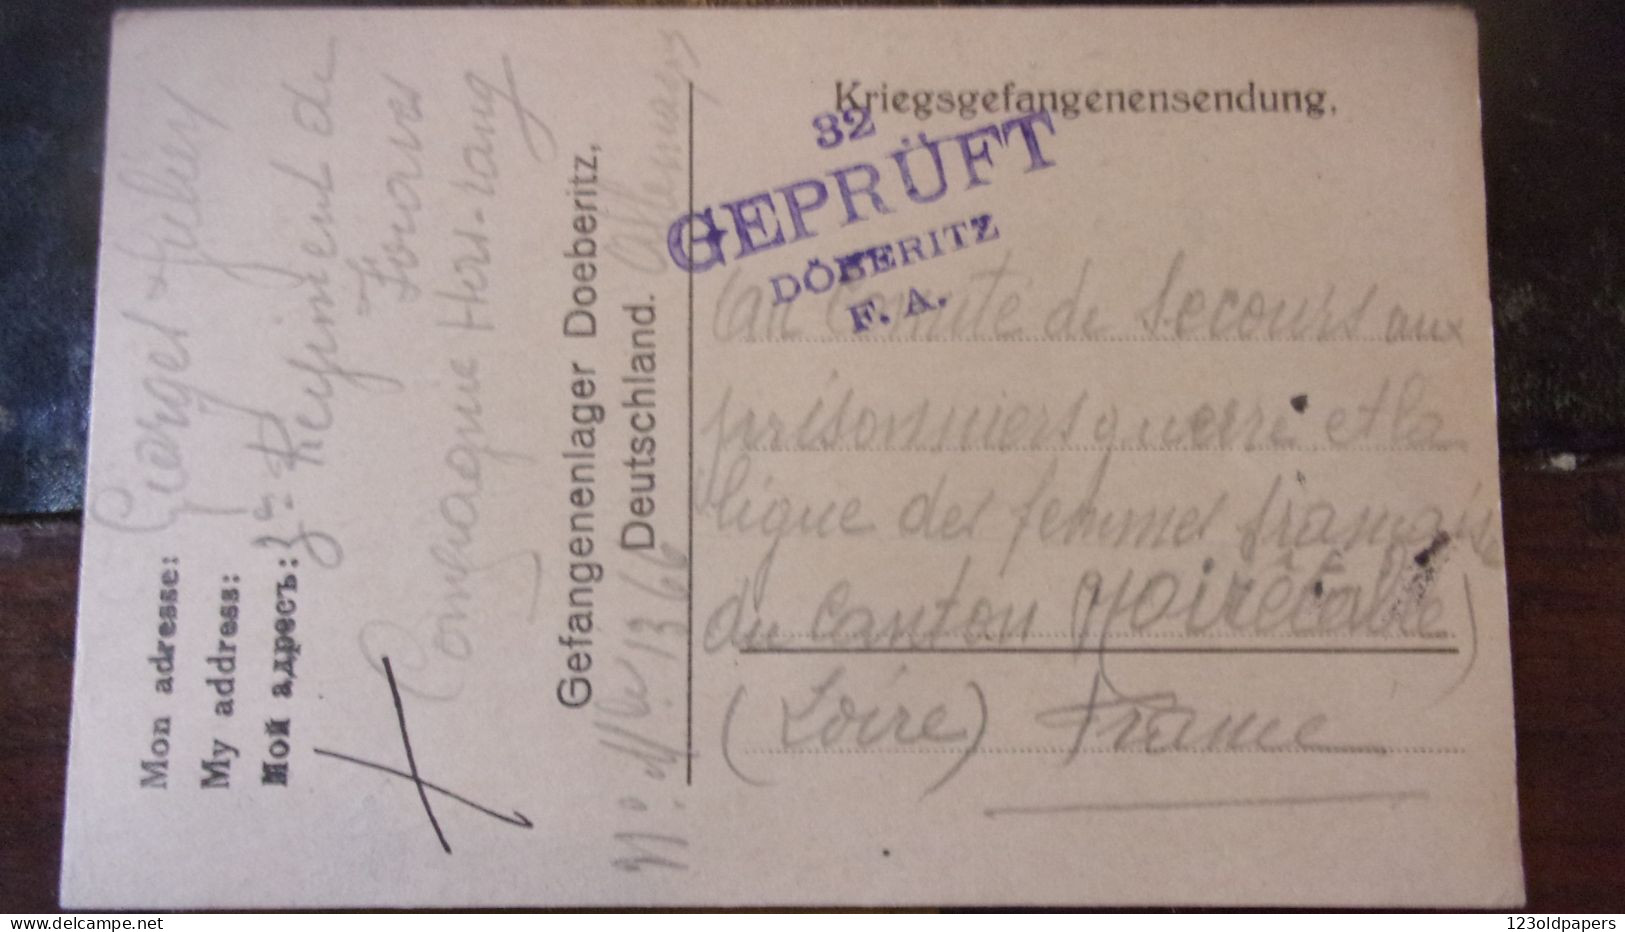 Kriegsgefangenensendung,
32
GEPRÜFT
DÖBERITZ
F. A.
Au Comité de Secours aux
prisonniers guerre et la
ligue des femmes français
du canton Noirétable
(Loire) France
Mon adresse: Georges
My address:
Мой адресъ: 3e Regiment de
Zouaves
Compagnie Hors-rang
Gefangenenlager Doeberitz,
Deutschland. Allemagne
N° Mle 1366
123oldpapers